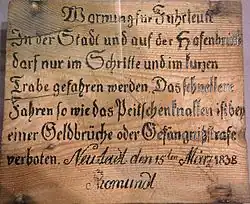 Warnung für Fuhrleute
In der Stadt und auf der Hafenbrücke
darf nur im Schritte und im kurzen
Trabe gefahren werden. Das schnellere
Fahren so wie das Peitschenknallen ist bey
einer Geldbrüche oder Gefängnißstrafe
verboten. Neustadt den 15ten März 1838
Romundt